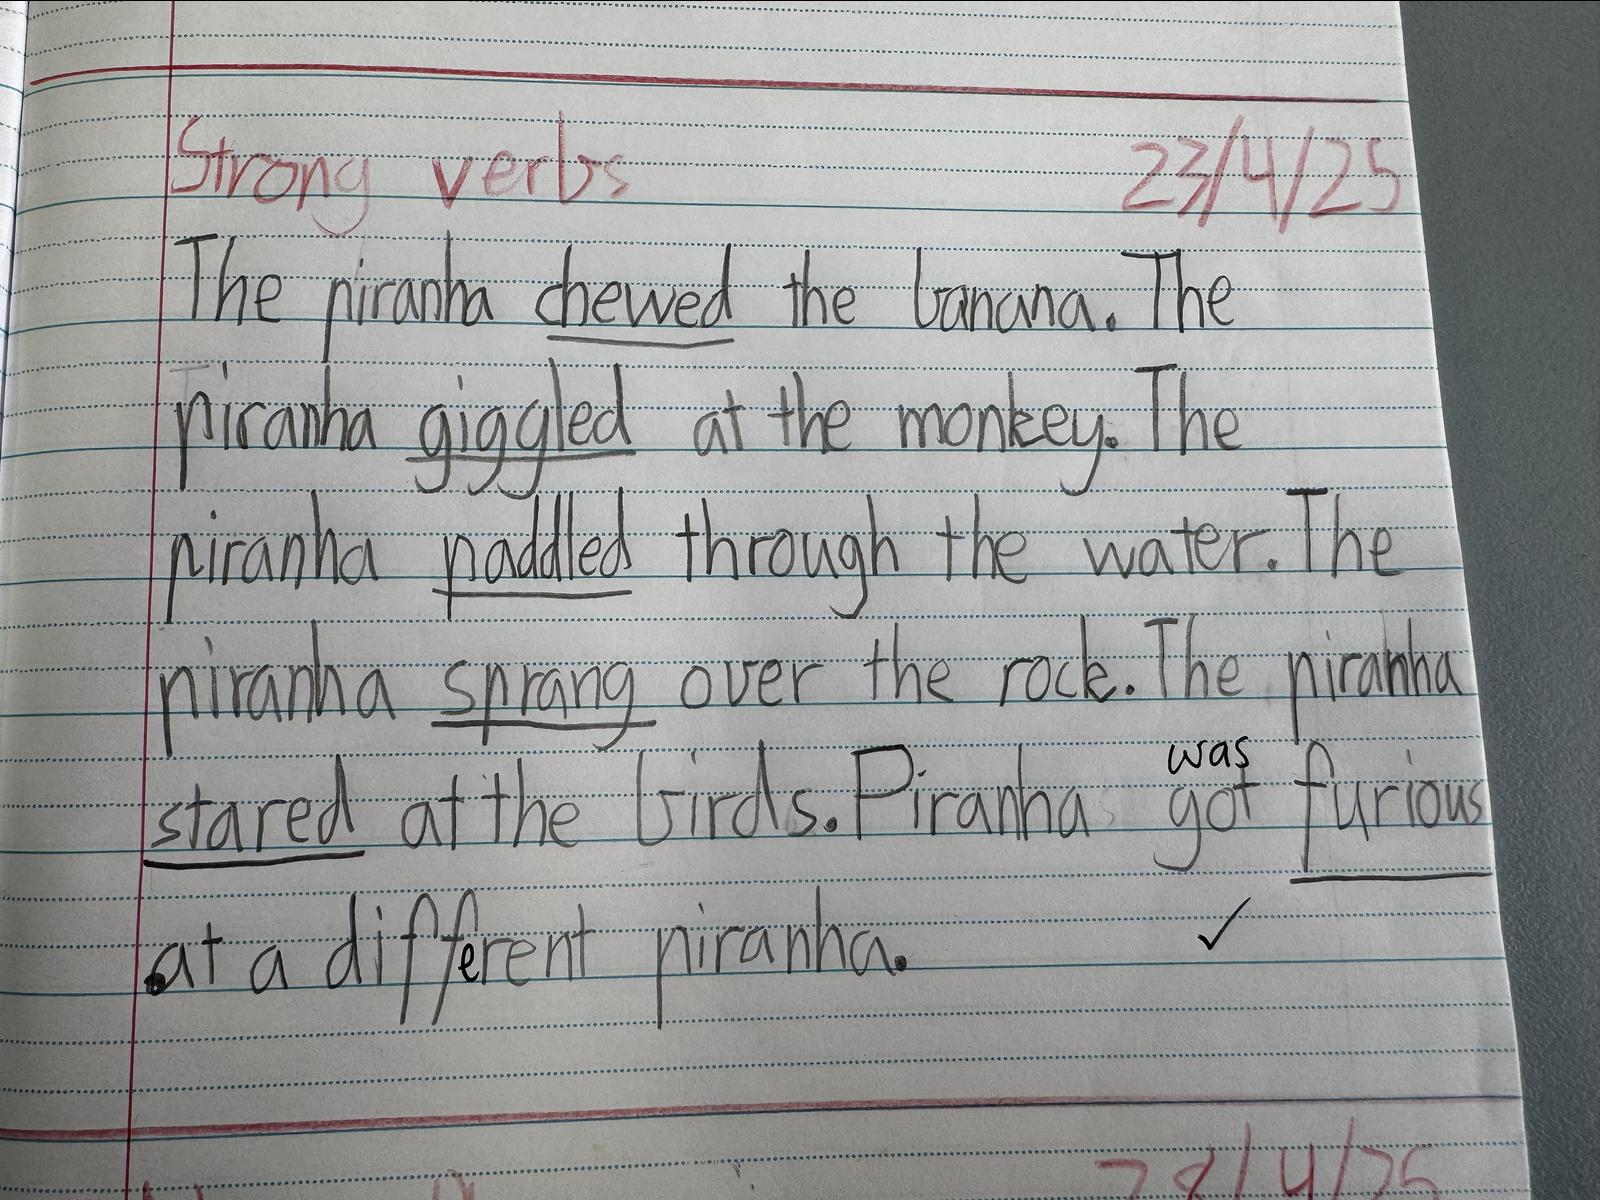 Strong verbs 23/4/25
The piranha chewed the banana. The
piranha giggled at the monkey. The
piranha paddled through the water. The
piranha sprang over the rock. The piranha
was
stared at the birds. Piranha got furious
at a different piranha.